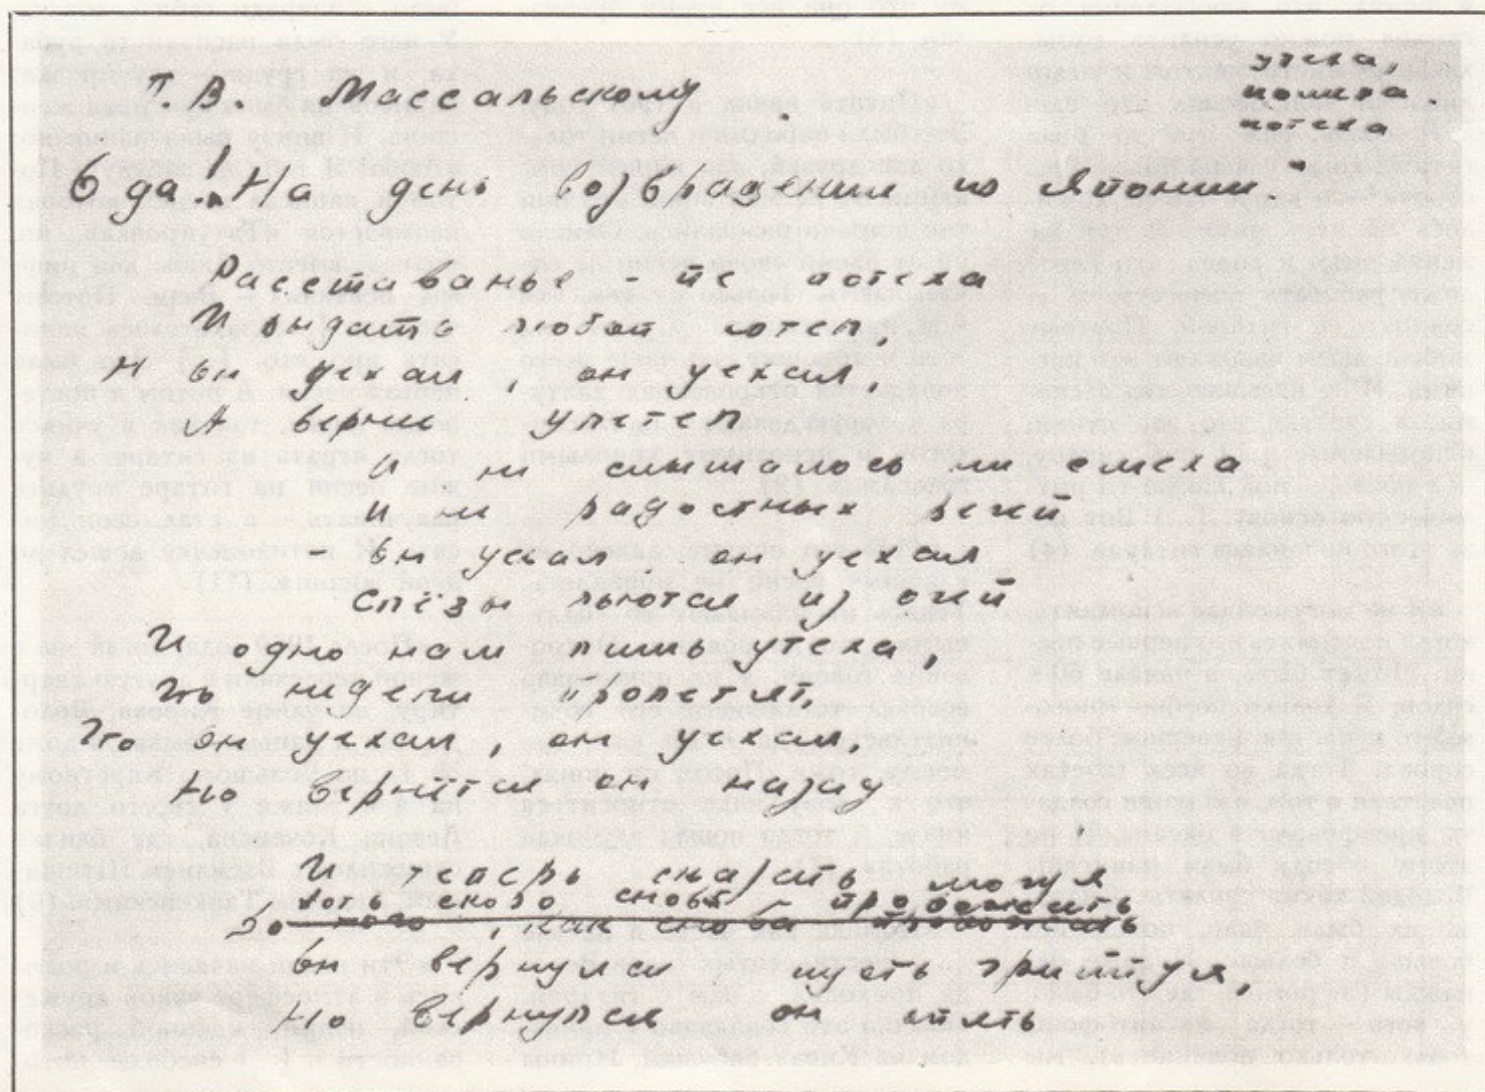 утеха,
помеха.
потеха
П. В. Массальскому.
Ода! На день возвращения из Японии.
Расставанье - не потеха
И рыдать любой хотел,
Н он уехал, он уехал,
А верней улетел
И не слышалось ни смеха
И ни радостных речей
- Он уехал он уехал
Слёзы льются из очей
И одно нам лишь утеха,
Что недели пролетят,
Что он уехал, он уехал,
Но вернётся он назад
И теперь сказать могу я
Хоть скоро снова - провожать
До того, как снова провожать
Он вернулся пусть гриппуя,
Но вернулся он опять